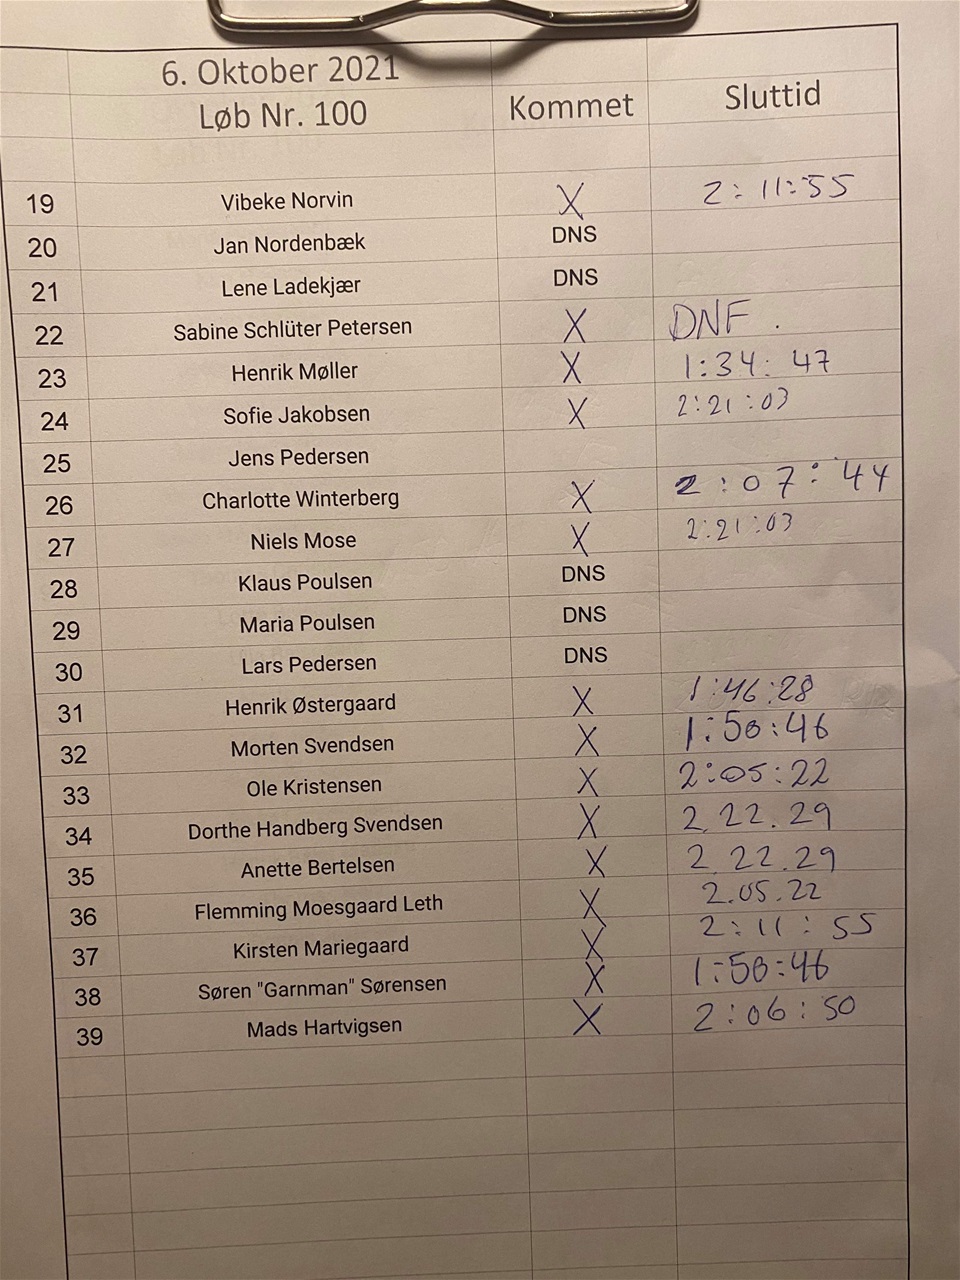 6. Oktober 2021
Løb Nr. 100 Kommet Sluttid
19 Vibeke Norvin X 2:11:55
20 Jan Nordenbæk DNS
21 Lene Ladekjær DNS
22 Sabine Schlüter Petersen X DNF.
23 Henrik Møller X 1:34:47
24 Sofie Jakobsen X 2:21:03
25 Jens Pedersen
26 Charlotte Winterberg X 2:07:44
27 Niels Mose X 2:21:03
28 Klaus Poulsen DNS
29 Maria Poulsen DNS
30 Lars Pedersen DNS
31 Henrik Østergaard X 1:46:28
32 Morten Svendsen X 1:50:46
33 Ole Kristensen X 2:05:22
34 Dorthe Handberg Svendsen X 2.22.29
35 Anette Bertelsen X 2.22.29
36 Flemming Moesgaard Leth X 2.05.22
37 Kirsten Mariegaard X 2:11:55
38 Søren "Garnman" Sørensen X 1:50:46
39 Mads Hartvigsen X 2:06:50